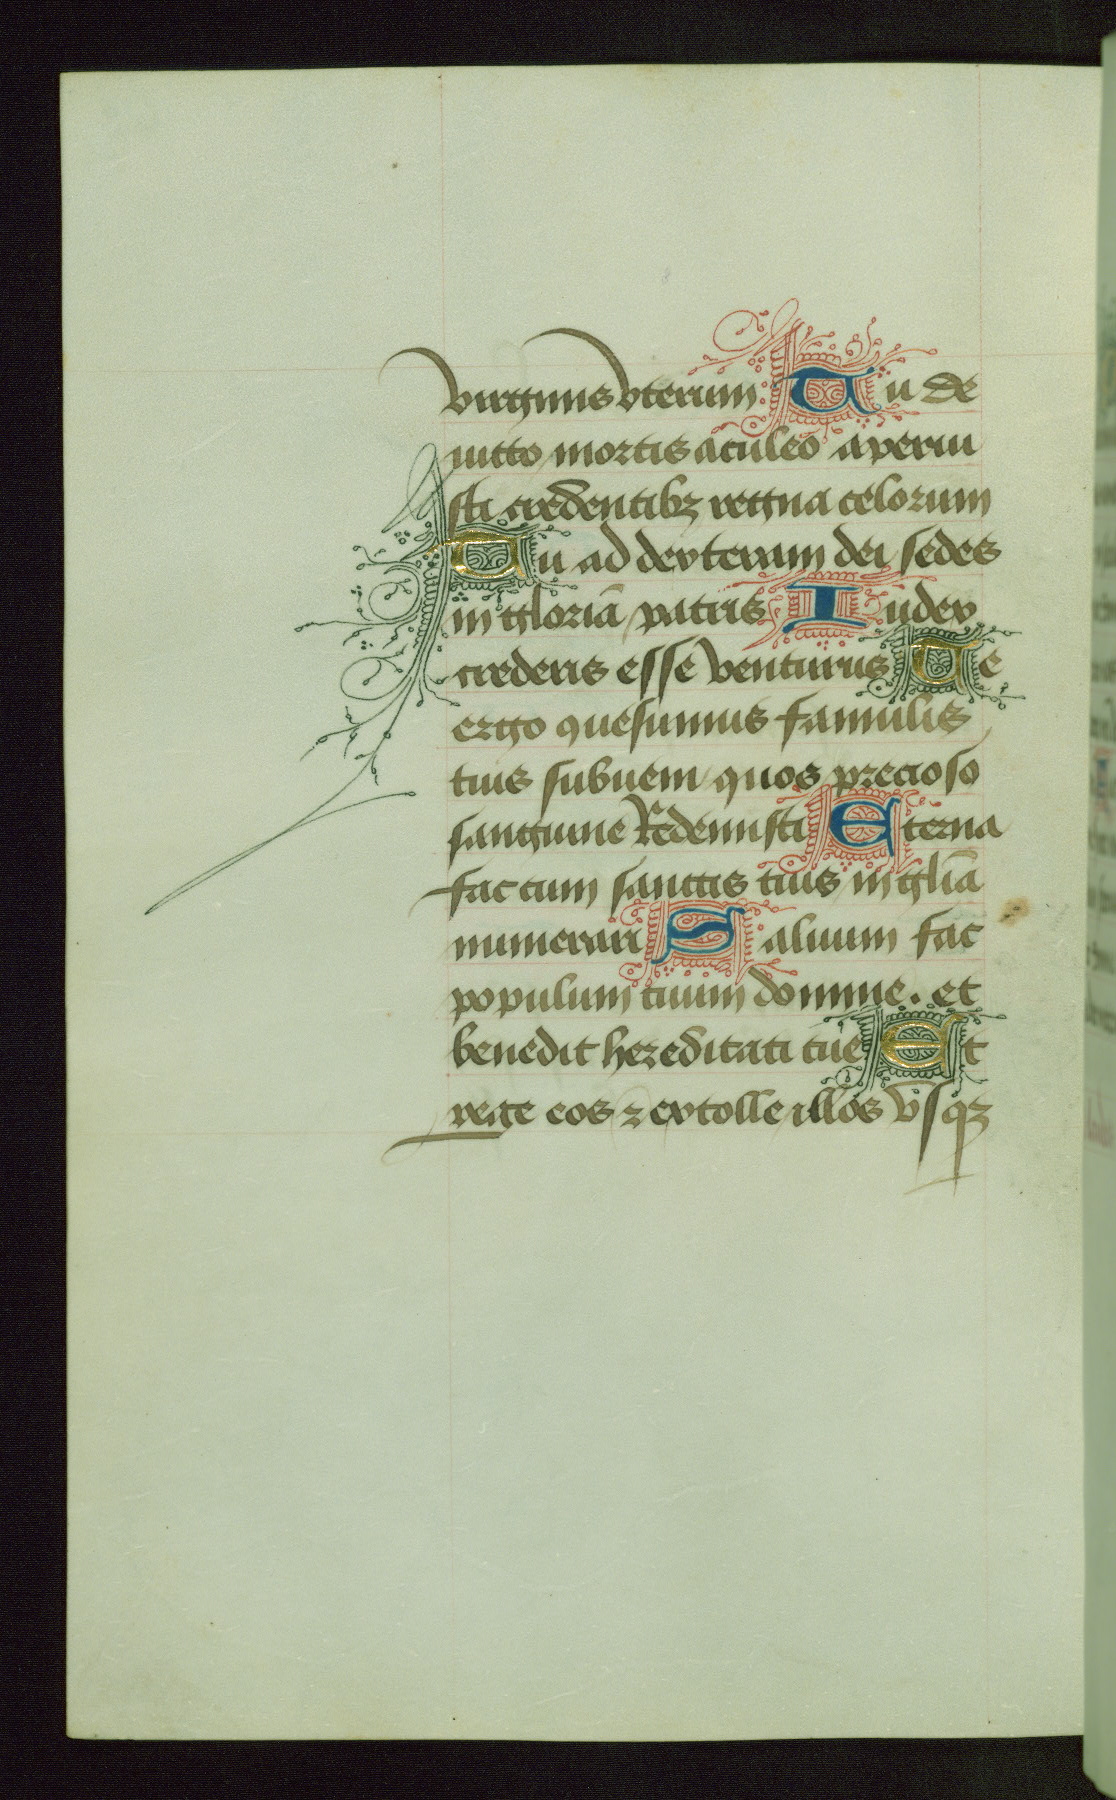 virginis vterum Tu de
uicto mortis aculeo aperui
sti credentibꝫ regna celorum
Tu ad dexteram dei sedes
in gloriā patris Iudex
crederis esse venturus Te
ergo quesumus famulis
tuis subueni quos precioso
sanguine Redemisti Eterna
fac cum sanctis tuis in gl̄ia
numerari Saluum fac
populum tuum domine. et
benedic hereditati tue Et
rege eos ⁊ extolle illos vsqꝫ